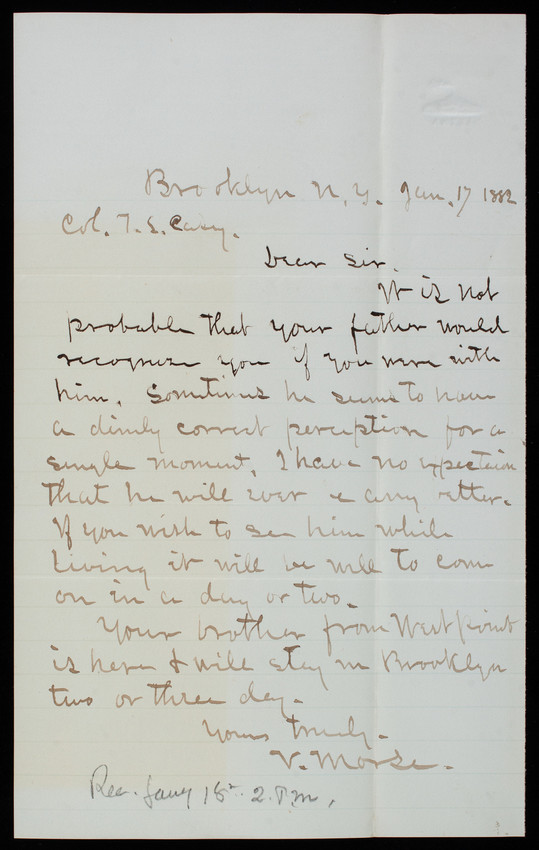 Brooklyn N.Y. Jan. 17 1882
Col. T. L. Casey.
Dear Sir.
It is not
probable that your father would
recognize you if you were with
him. Sometimes he seems to have
a dimly correct perception for a
single moment. I have no expectation
that he will ever be any better.
If you wish to see him while
living it will be well to come
on in a day or two.
Your brother from West Point
is here & will stay in Brooklyn
two or three day.
Yours truly.
V. Morse.
Rec. Jany 18 2 P.m.